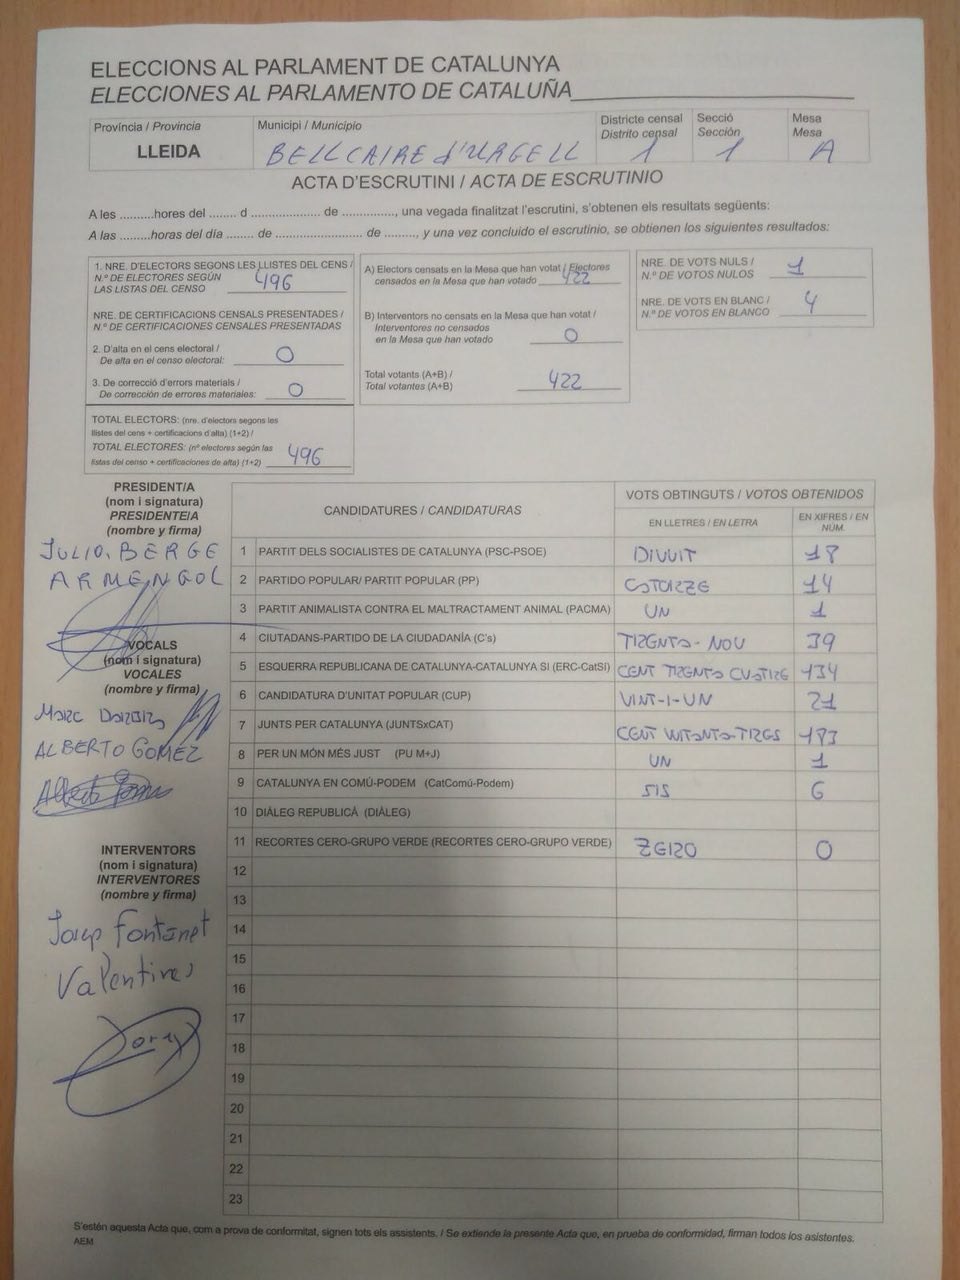 ELECCIONS AL PARLAMENT DE CATALUNYA
ELECCIONES AL PARLAMENTO DE CATALUÑA
Província / Provincia
LLEIDA
Municipi / Municipio
BELLCAIRE d'URGELL
Districte censal
Distrito censal
1
Secció
Sección
1
Mesa
Mesa
A
ACTA D'ESCRUTINI / ACTA DE ESCRUTINIO
A les ..........hores del ........ d ..................... de ................, una vegada finalitzat l'escrutini, s'obtenen els resultats següents:
A las ..........horas del día ........ de .......................... de .........., y una vez concluido el escrutinio, se obtienen los siguientes resultados:
1. NRE. D'ELECTORS SEGONS LES LLISTES DEL CENS /
N.º DE ELECTORES SEGÚN
LAS LISTAS DEL CENSO 496
NRE. DE CERTIFICACIONS CENSALS PRESENTADES /
N.º DE CERTIFICACIONES CENSALES PRESENTADAS
2. D'alta en el cens electoral /
De alta en el censo electoral: 0
3. De correcció d'errors materials /
De corrección de errores materiales: 0
TOTAL ELECTORS: (nre. d'electors segons les
llistes del cens + certificacions d'alta) (1+2) /
TOTAL ELECTORES: (nº electores según las
listas del censo + certificaciones de alta) (1+2) 496
A) Electors censats en la Mesa que han votat / Electores
censados en la Mesa que han votado 422
B) Interventors no censats en la Mesa que han votat /
Interventores no censados
en la Mesa que han votado 0
Total votants (A+B) /
Total votantes (A+B) 422
NRE. DE VOTS NULS /
N.º DE VOTOS NULOS 1
NRE. DE VOTS EN BLANC /
N.º DE VOTOS EN BLANCO 4
PRESIDENT/A
(nom i signatura)
PRESIDENTE/A
(nombre y firma)
JULIO BERGE
ARMENGOL
VOCALS
(nom i signatura)
VOCALES
(nombre y firma)
Marc
ALBERTO GOMEZ
INTERVENTORS
(nom i signatura)
INTERVENTORES
(nombre y firma)
Josep Fontanet
Valentines
CANDIDATURES / CANDIDATURAS
VOTS OBTINGUTS / VOTOS OBTENIDOS
EN LLETRES / EN LETRA
EN XIFRES / EN NÚM.
1 PARTIT DELS SOCIALISTES DE CATALUNYA (PSC-PSOE) DIVUIT 18
2 PARTIDO POPULAR/ PARTIT POPULAR (PP) CATORZE 14
3 PARTIT ANIMALISTA CONTRA EL MALTRACTAMENT ANIMAL (PACMA) UN 1
4 CIUTADANS-PARTIDO DE LA CIUDADANÍA (C's) TRENTA-NOU 39
5 ESQUERRA REPUBLICANA DE CATALUNYA-CATALUNYA SI (ERC-CatSI) CENT TRENTA CUATRE 134
6 CANDIDATURA D'UNITAT POPULAR (CUP) VINT-I-UN 21
7 JUNTS PER CATALUNYA (JUNTSxCAT) CENT VUITANTA-TRES 183
8 PER UN MÓN MÉS JUST (PU M+J) UN 1
9 CATALUNYA EN COMÚ-PODEM (CatComú-Podem) SIS 6
10 DIÀLEG REPUBLICÀ (DIÀLEG)
11 RECORTES CERO-GRUPO VERDE (RECORTES CERO-GRUPO VERDE) ZERO 0
12
13
14
15
16
17
18
19
20
21
22
23
S'estén aquesta Acta que, com a prova de conformitat, signen tots els assistents. / Se extiende la presente Acta que, en prueba de conformidad, firman todos los asistentes.
AEM